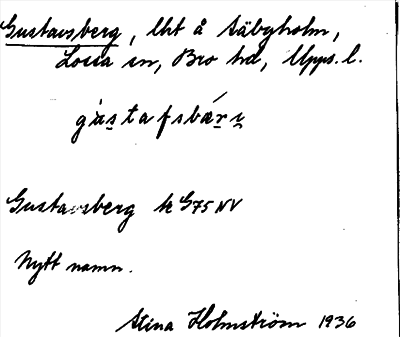 Gustavsberg, lht å Säbyholm,
Låssa sn, Bro hd, Upps. l.
gàstafsbær̯y̯
Gustavsberg tr G75 NV
Nytt namn.
Stina Holmström 1936